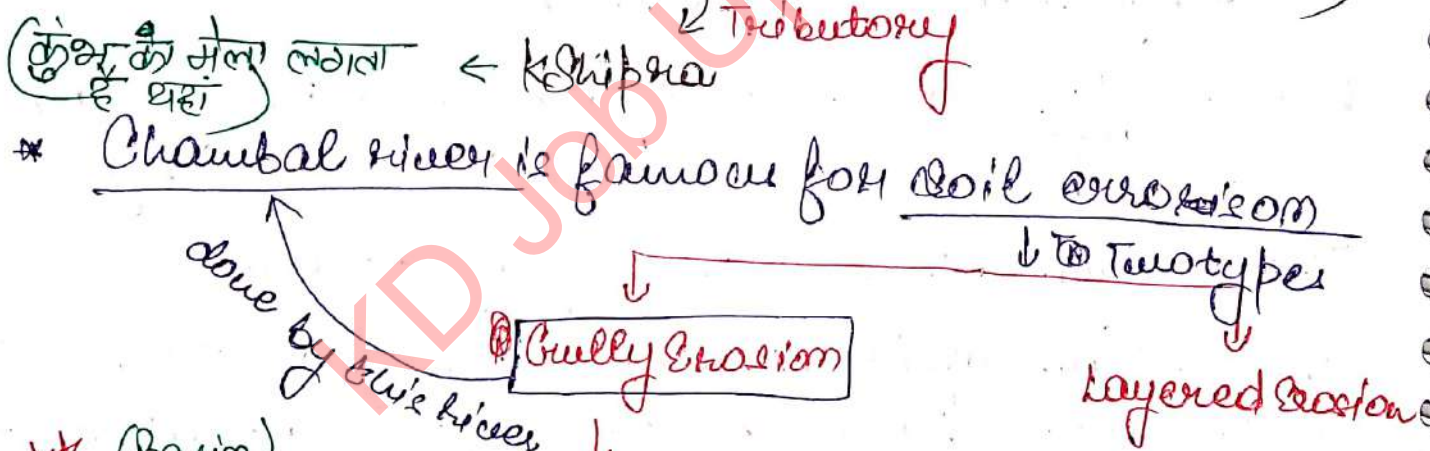 ↙ Tributory
कुंभ के मेला लगता ← Kshipra
है यहां
* Chambal river is famous for soil errosison
↓ Two types
done by this river
Gully Erosion
Layered Erosion
KD Job U